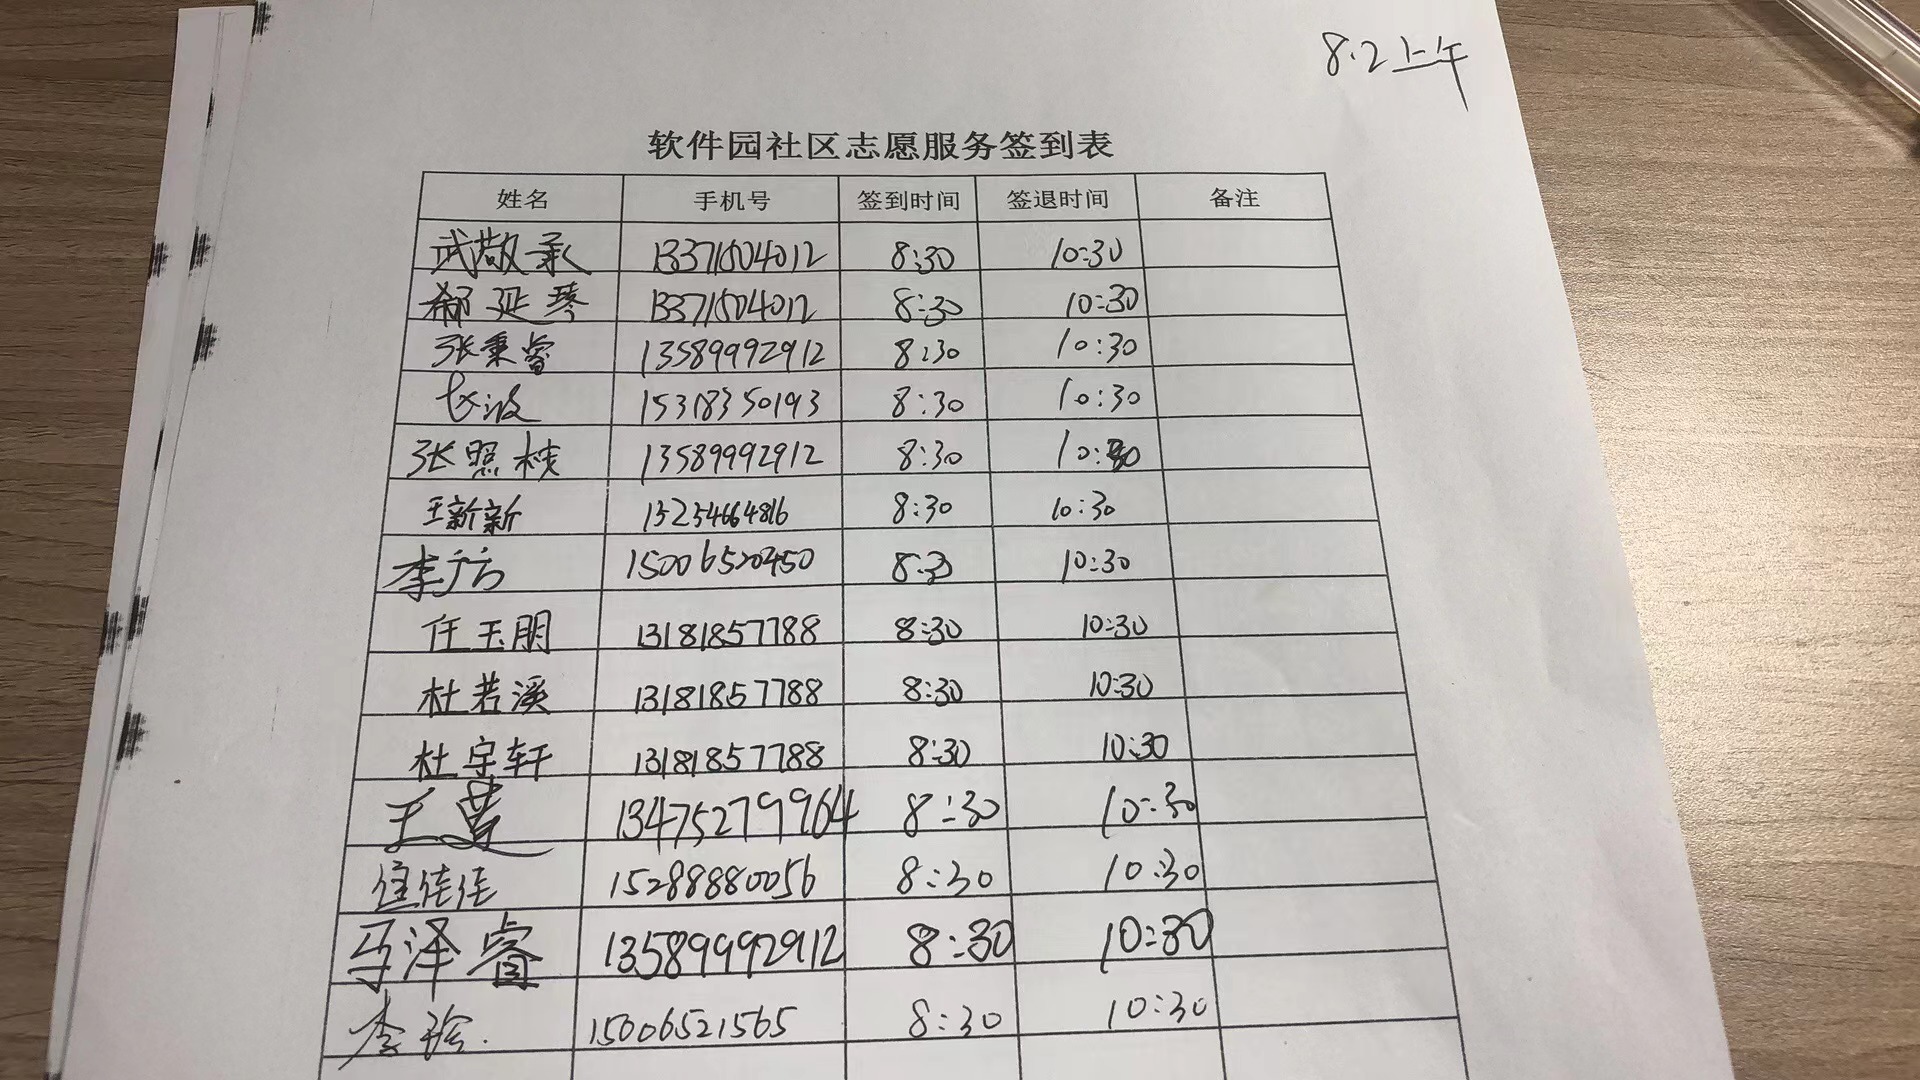 8.2上午
软件园社区志愿服务签到表
姓名 手机号 签到时间 签退时间 备注
武敬承 13371504012 8:30 10:30
郗延琴 13371504012 8:30 10:30
张秉睿 13589992912 8:30 10:30
15318350193 8:30 10:30
张照核 13589992912 8:30 10:30
王新新 15254664816 8:30 10:30
李广方 15006520450 8:30 10:30
任玉朋 13181857788 8:30 10:30
杜若溪 13181857788 8:30 10:30
杜宇轩 13181857788 8:30 10:30
王 13475279964 8:30 10:30
佳佳 15288880056 8:30 10:30
马泽睿 13589992912 8:30 10:30
李玲. 15006521565 8:30 10:30